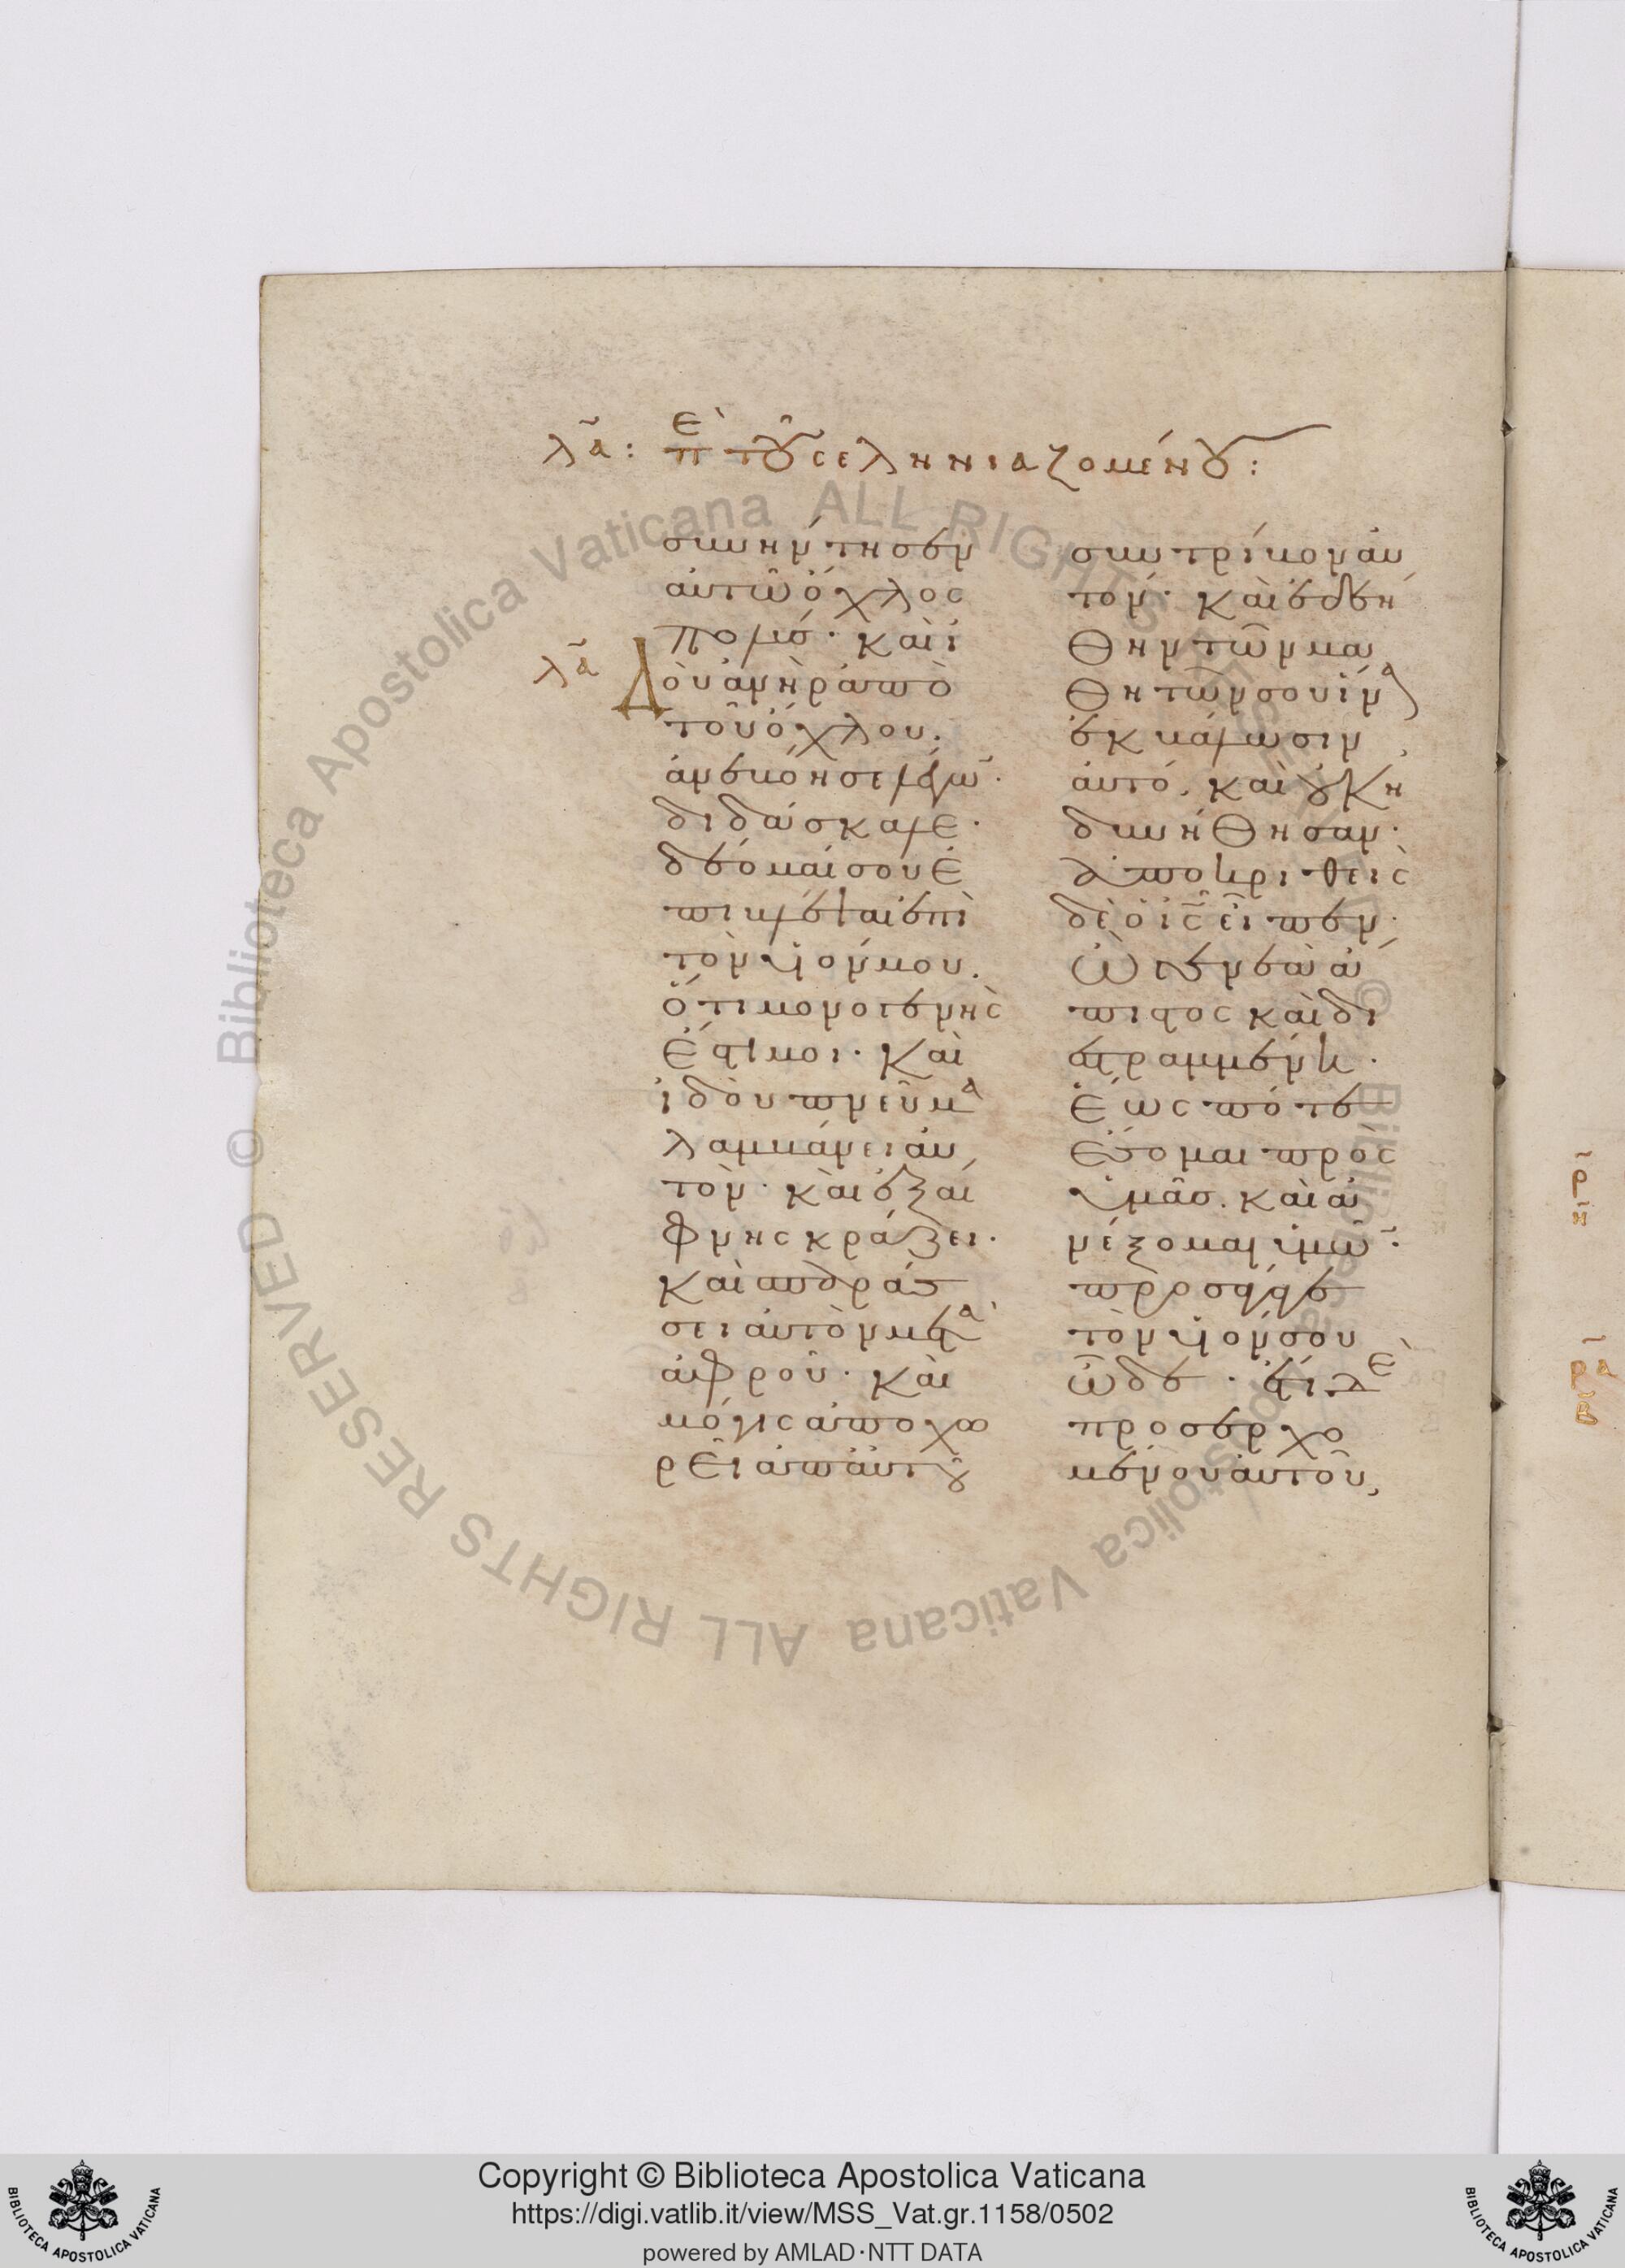 λα: πε του σεληνιαζομένου:
συνήντησεν
αὐτῶ ὄχλος
πολύσ· καὶ ἰ
λα
δοὺ ἀνὴρ ἀπὸ
τοῦ ὄχλου.
ἀνεβόησε λέγων·
διδάσκαλε·
δέομαί σου ἐ
πίβλεψαι ἐπὶ
τὸν υἱόν μου.
ὅτι μονογενής
ἐστί μοι· καὶ
ἰδοὺ πνεῦμα
λαμβάνει αὐ
τὸν· καὶ ἐξαί
φνης κράζει·
καὶ σπαράσ
σει αὐτὸν μετὰ
ἀφροῦ· καὶ
μόγις ἀποχω
ρεῖ ἀπ' αὐτοῦ
συντρίβον αὐ
τόν· καὶ ἐδεή
θην τῶν μα
θητῶν σου ἵνα
ἐκβάλωσιν
αὐτό, καὶ οὐκ ἠ
δυνήθησαν·
ἀποκριθεὶς
δὲ ὁ ισ εἶπεν·
ὦ γενεὰ ἄ
πιστος καὶ δι
εστραμμένη·
ἕως πότε
ἔσομαι πρὸς
ὑμᾶσ. καὶ ἀ
νέξομαι ὑμῶν·
προσάγαγε
τὸν υἱόν σου
ὧδε· ἔτι δὲ
προσερχο
μένου αὐτοῦ,
Copyright © Biblioteca Apostolica Vaticana
https://digi.vatlib.it/view/MSS_Vat.gr.1158/0502
powered by AMLAD·NTT DATA
BIBLIOTECA APOSTOLICA VATICANA
BIBLIOTECA APOSTOLICA VATICANA
© Biblioteca Apostolica Vaticana ALL RIGHTS RESERVED
© Biblioteca Apostolica Vaticana ALL RIGHTS RESERVED